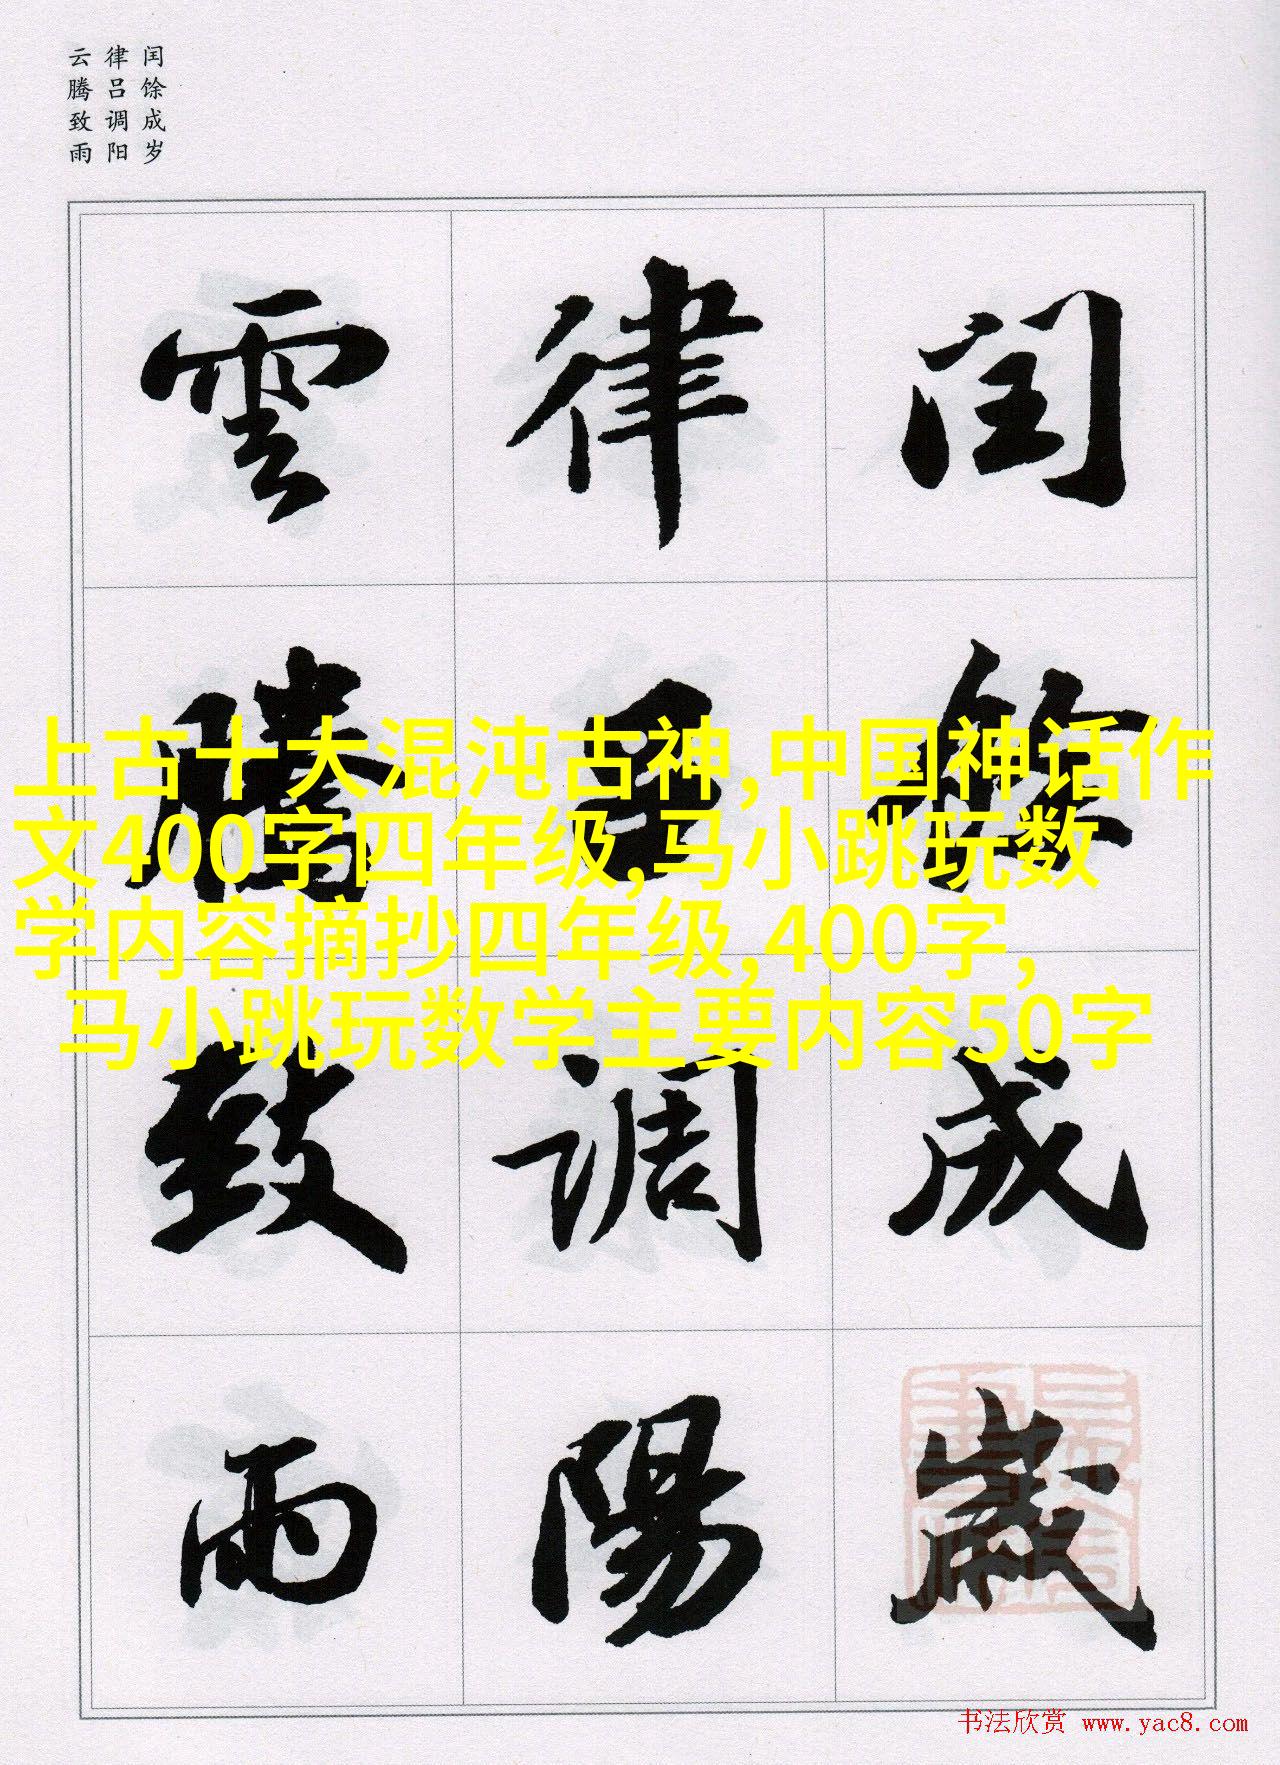 闰馀成岁
律吕调阳
云腾致雨
閏餘成歲
律呂調陽
雲騰致雨
上古十大混沌古神,中国神话作
文400字四年级,马小跳玩数
学内容摘抄四年级,400字,
马小跳玩数学主要内容50字
书法欣赏 www.yac8.com